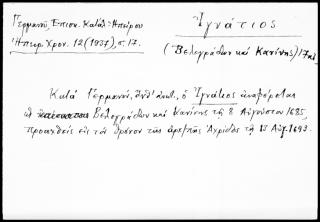 Γερμανοῦ, Ἐπισκ. Κατάλ. Ἠπείρου
Ἠπειρ. Χρον. 12 (1937), σ. 17.
Ἰγνάτιος
(Βελεγράδων καὶ Κανίνης) 17
Κατὰ Γερμανόν, ἔνθ' ἀνωτ., ὁ Ἰγνάτιος ἀναφέρεται
Βελεγράδων καὶ Κανίνης τῇ 8 Αὐγούστου 1685,
προαχθεὶς εἰς τὸν θρόνον τῆς ἀρχ/πῆς Ἀχρίδος τῇ 15 Αὐγ. 1693.